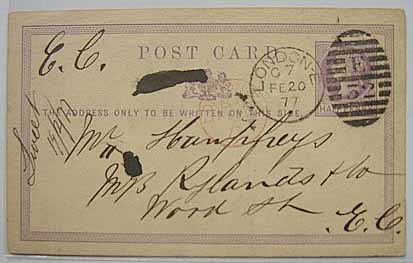 E.C.
POST CARD
LONDON·E
C 7
FE 20
77
E
HALFPENNY
THE ADDRESS ONLY TO BE WRITTEN ON THIS SIDE.
Mr Humphreys
Rylands & Co
Wood St.
E.C.